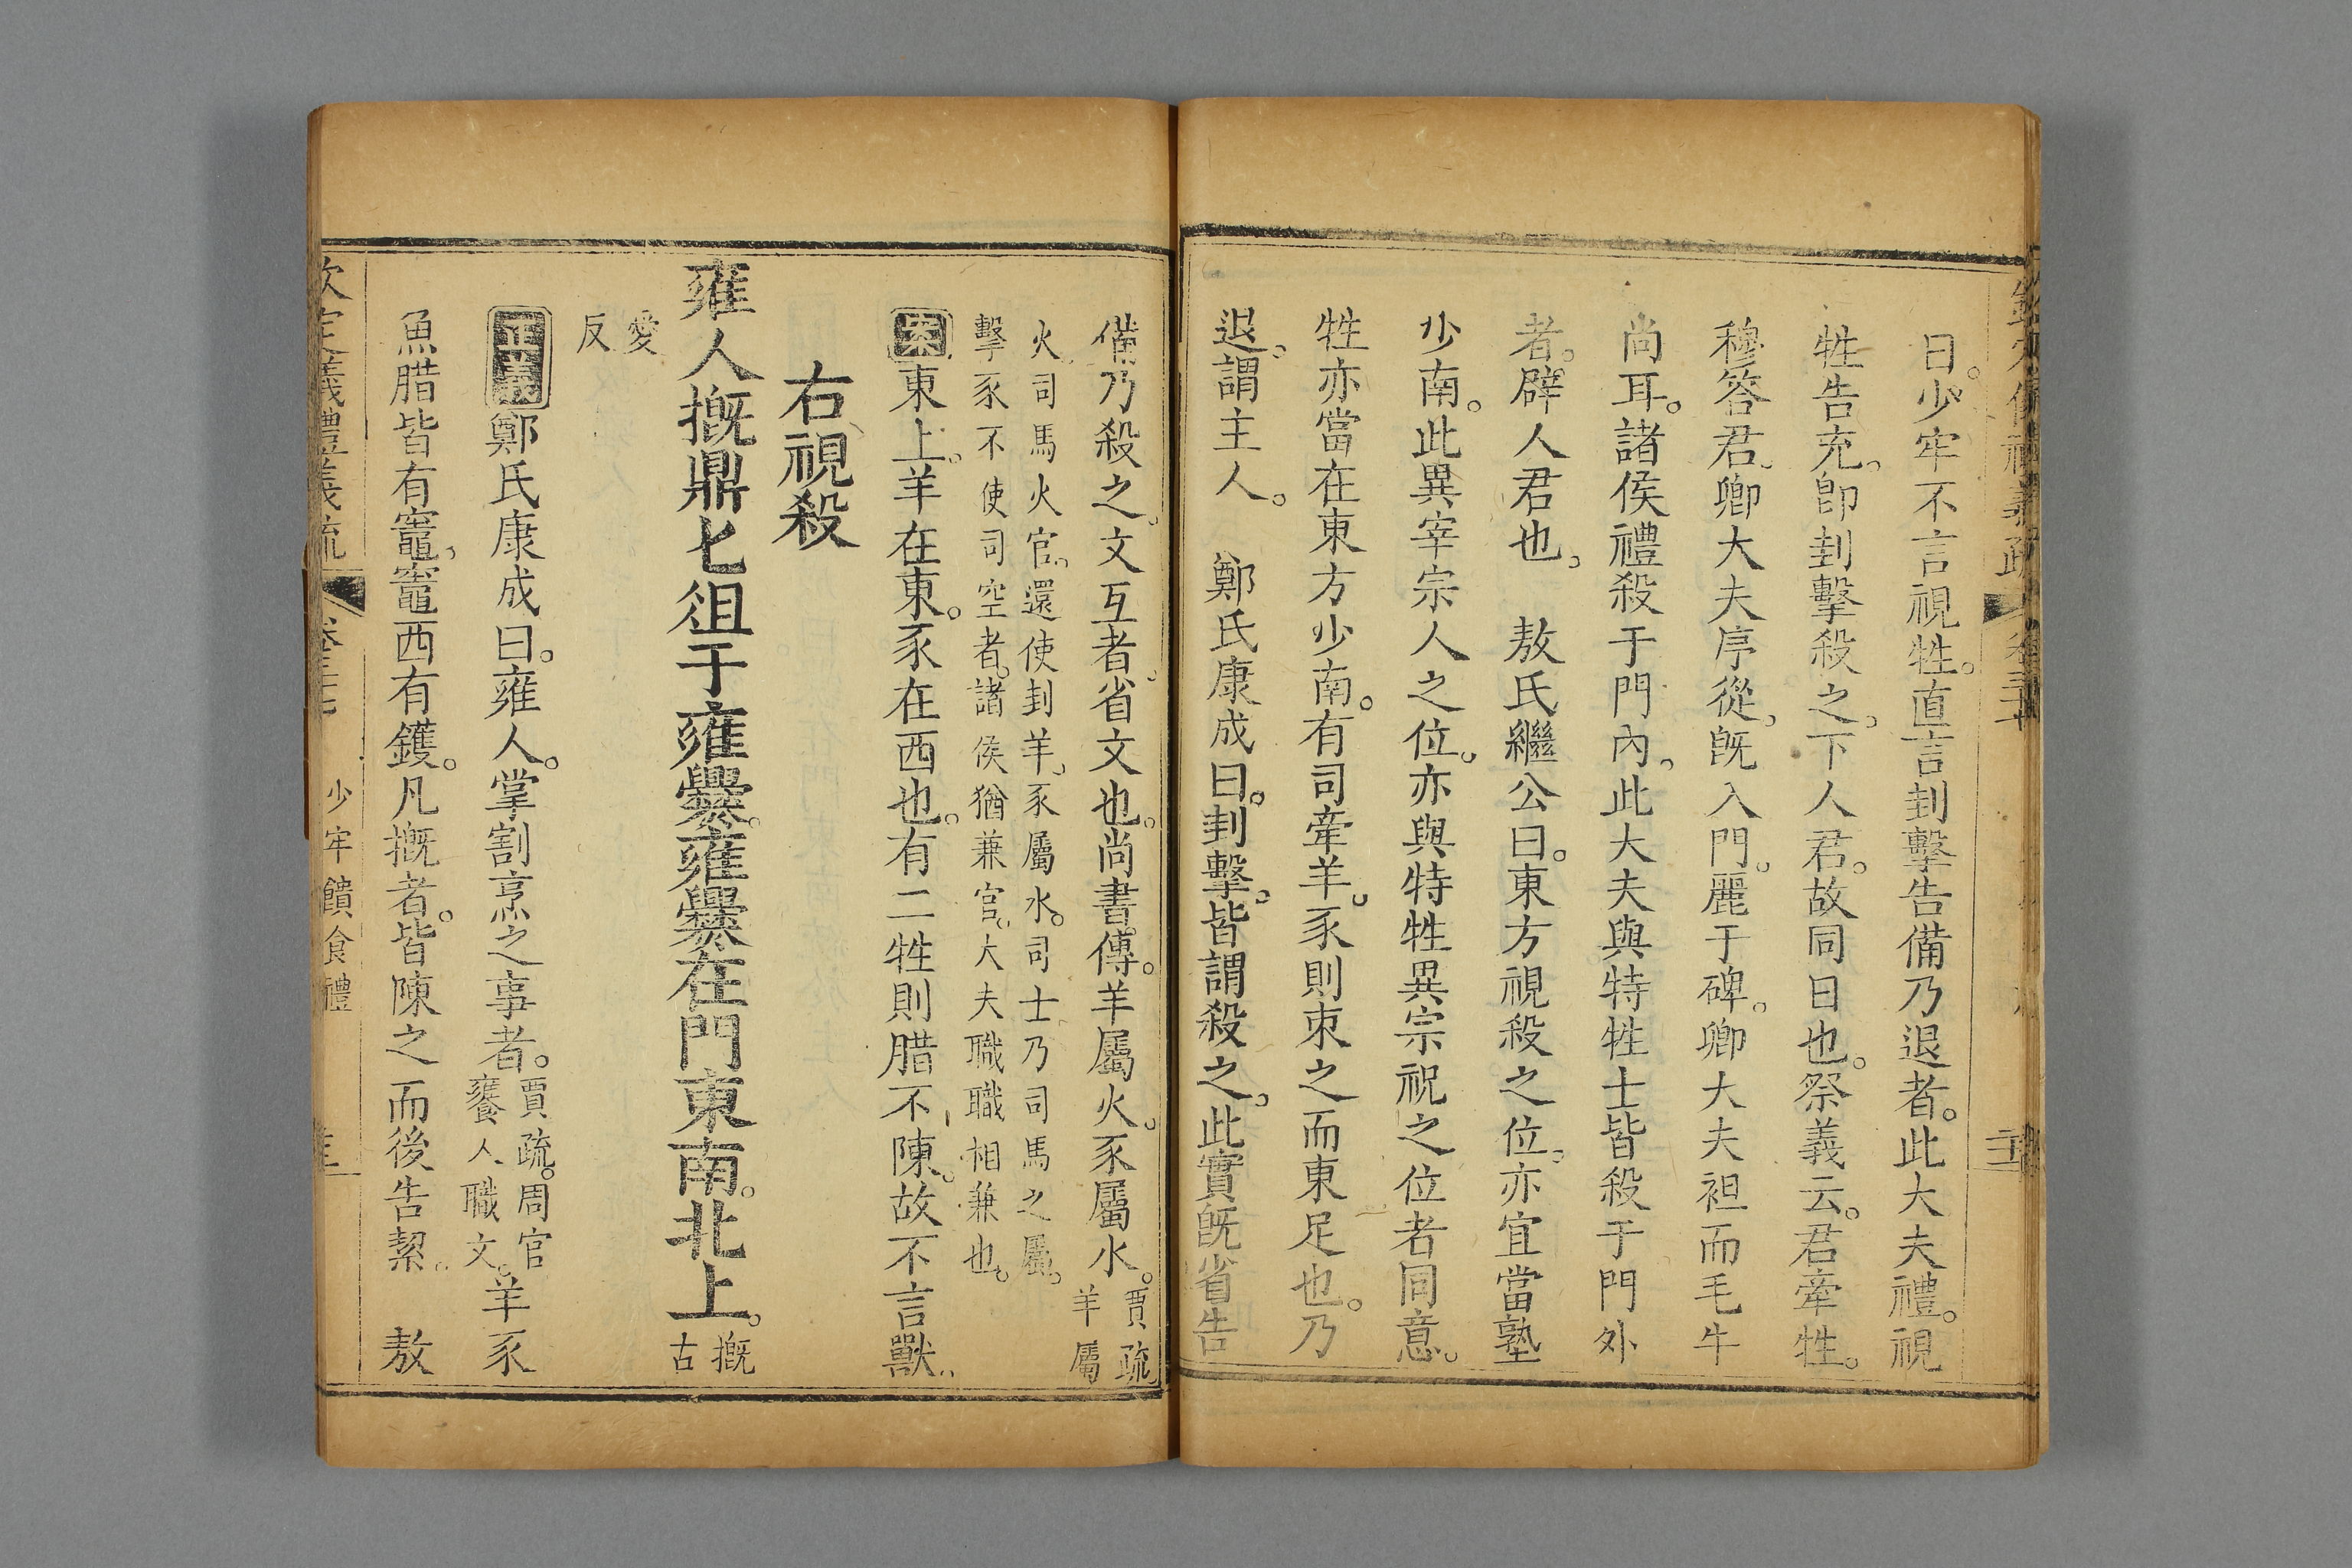 日。少牢不言視牲。直言刲擊告備乃退者。此大夫禮。視
牲告充。卽刲擊殺之。下人君。故同日也。祭義云。君牽牲。
穆答君。卿大夫序從。旣入門。麗于碑。卿大夫袒而毛牛
尚耳。諸侯禮殺于門內。此大夫與特牲士皆殺于門外
者。辟人君也。 敖氏繼公曰。東方視殺之位。亦宜當塾
少南。此異宰宗人之位。亦與特牲異宗祝之位者同意。
牲亦當在東方少南。有司牽羊。豕則束之而東足也。乃
退。謂主人。 鄭氏康成曰。刲擊。皆謂殺之。此實旣省告
備乃殺之。文互者。省文也。尚書傳。羊屬火。豕屬水。賈疏羊屬
火。司馬火官。還使刲羊。豕屬水。司士乃司馬之屬。
擊豕不使司空者。諸侯猶兼官。大夫職職相兼也。
案東上。羊在東。豕在西也。有二牲則腊不陳。故不言獸。
右視殺
雍人摡鼎匕俎于雍爨。雍爨在門東南。北上。摡古
愛反
正義鄭氏康成曰。雍人。掌割烹之事者。賈疏。周官饔人職文。羊豕
魚腊皆有竈。竈西有鑊。凡摡者。皆陳之而後告絜。 敖
欽定義禮義疏 少牢饋食禮